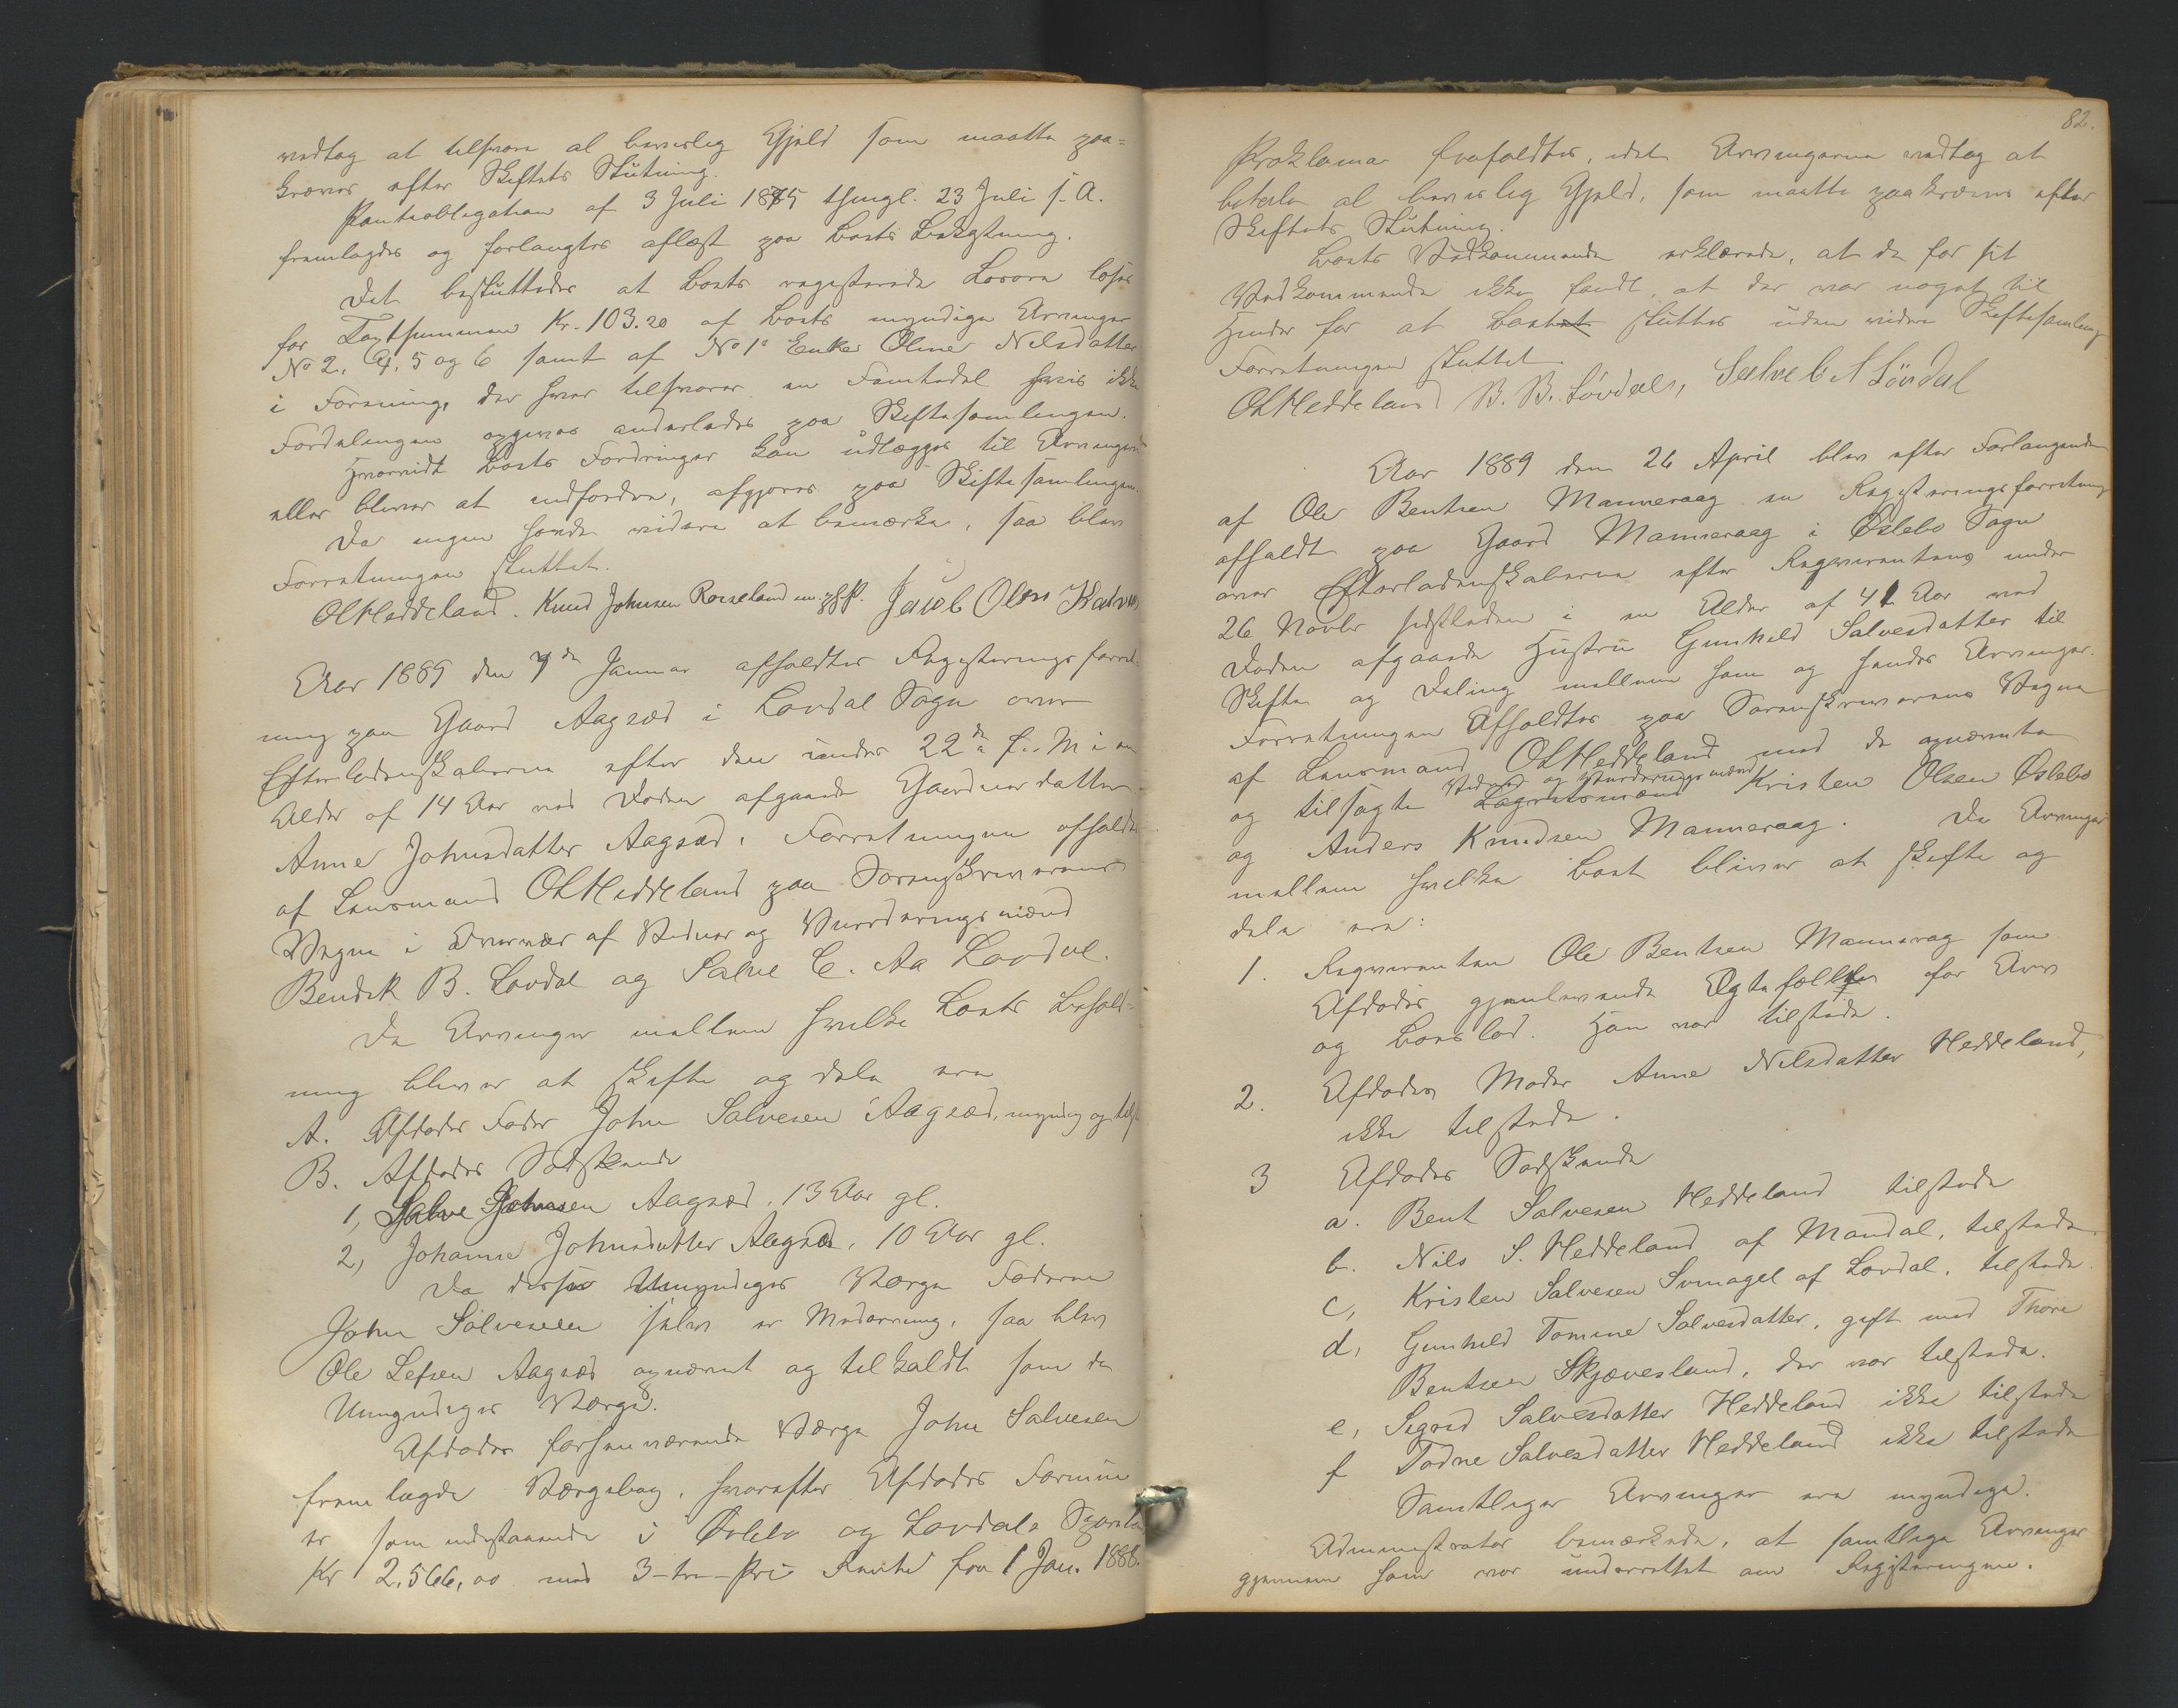 vedtog at tilsvare al beviislig Gjeld som maatte paa=
kræves efter Skiftets Slutning.
Panteobligation af 3 Juli 1875 thingl. 23 Juli s. A.
fremlagdes og forlangtes aflæst paa Boets Bekostning.
Det besluttedes at Boets registerede Løsøre løses
for Taxtsummen Kr. 103.20 af Boets myndige Arvinger
No 2, 4, 5 og 6 samt af No 1 Enke Oline Nilsdatter
i Forening, der hver tilsvarer en Femtedel hvis ikke
Fordelingen opgives anderledes paa Skiftesamlingen.
Hvorvidt Boets Fordringer kan udlægges til Arvingerne
eller bliver at indfordre, afgjøres paa Skiftesamlingen.
Da ingen havde videre at bemærke, saa blev
Forretningen sluttet.
OKHeddeland. Knud Johnsen Rosseland m.p.P. Jacob Olsen
Aar 1889 den 7de Januar afholdtes Registeringsforret=
ning paa Gaard Aagsæd i Løvdal Sogn over
Efterladenskaberne efter den under 22de f. M i en
Alder af 14 Aar ved Døden afgaaede Gaardmandsdatter
Anne Johnsdatter Aagsæd. Forretningen afholdtes
af Lensmand OKHeddeland paa Sorenskriverens
Vegne i Overvær af Vidner og Vurderingsmænd
Bendik B. Løvdal og Salve C. Aa Løvdal.
De Arvinger mellem hvilke Boets Behold=
ning bliver at skifte og dele ere
A. Afdødes Fader John Salvesen Aagsæd, myndig og tilst
B. Afdødes Sødskende
1, Salve Johnsen Aagsæd. 13 Aar gl.
2, Johanne Johnsdatter Aagsæd. 10 Aar gl.
Da disse Umyndiges Værge Faderen
John Salvesen selv er Medarving, saa blev
Ole Lefsen Aagsæd opnævnt og tilkaldt som de
Umyndiges Værge.
Afdødes forhenværende Værge John Salvesen
fremlagde Værgebog, hvorefter Afdødes Formue
er som indestaaende i Øslebø og Løvdals Spareba
Kr 2.566,00 med 3-tre-Pct Rente fra 1 Jan. 1888.
82.
Proklama frafaldtes, idet Arvingerne vedtog at
betale al beviislig Gjeld, som maatte paakræves efter
Skiftets Slutning.
Boets Vedkommende erklærede, at de for sit
Vedkommende ikke fandt, at der var noget til
Hinder for at Boet sluttes uden videre Skiftesamling
Forretningen sluttet.
OKHeddeland B. B. Løvdal, Salve C A Lövdal
Aar 1889 den 26 April blev efter Forlangende
af Ole Bentsen Manneraag en Registeringsforretning
afholdt paa Gaard Manneraag i Øslebø Sogn
over Efterladenskaberne efter Requirentens under
26 Novbr sidstleden i en Alder af 41 Aar ved
Døden afgaaede Hustru Gunhild Salvesdatter til
Skifte og Deling mellem ham og hendes Arvinger.
Forretningen Afholdtes paa Sorenskriverens Vegne
af Lensmand OKHeddeland med de opnævnte
og tilsagte Lagretsmænd Vidner og Vurderingsmænd Kristen Olsen Øslebø
og Anders Knudsen Manneraag. De Arvinger
mellem hvilke Boet bliver at skifte og
dele ere:
1. Requirenten Ole Bentsen Manneraag som
Afdødes gjenlevende Ægtefælle for Arv
og Boeslod. Han var tilstede.
2. Afdødes Moder Anne Nilsdatter Heddeland,
ikke tilstede.
3 Afdødes Sødskende
a. Bent Salvesen Heddeland tilstede
b. Nils S. Heddeland af Mandal, tilstede.
c, Kristen Salvesen Svinagel af Løvdal. tilstede.
d, Gunhild Tomine Salvesdatter, gift med Thore
Bentsen Skjævesland, der var tilstede.
e, Sigrid Salvesdatter Heddeland ikke tilstede
f Todne Salvesdatter Heddeland ikke tilstede
Samtlige Arvinger ere myndige.
Administrator bemærkede, at samtlige Arvinger
gjennem ham var underrettet om Registeringen.